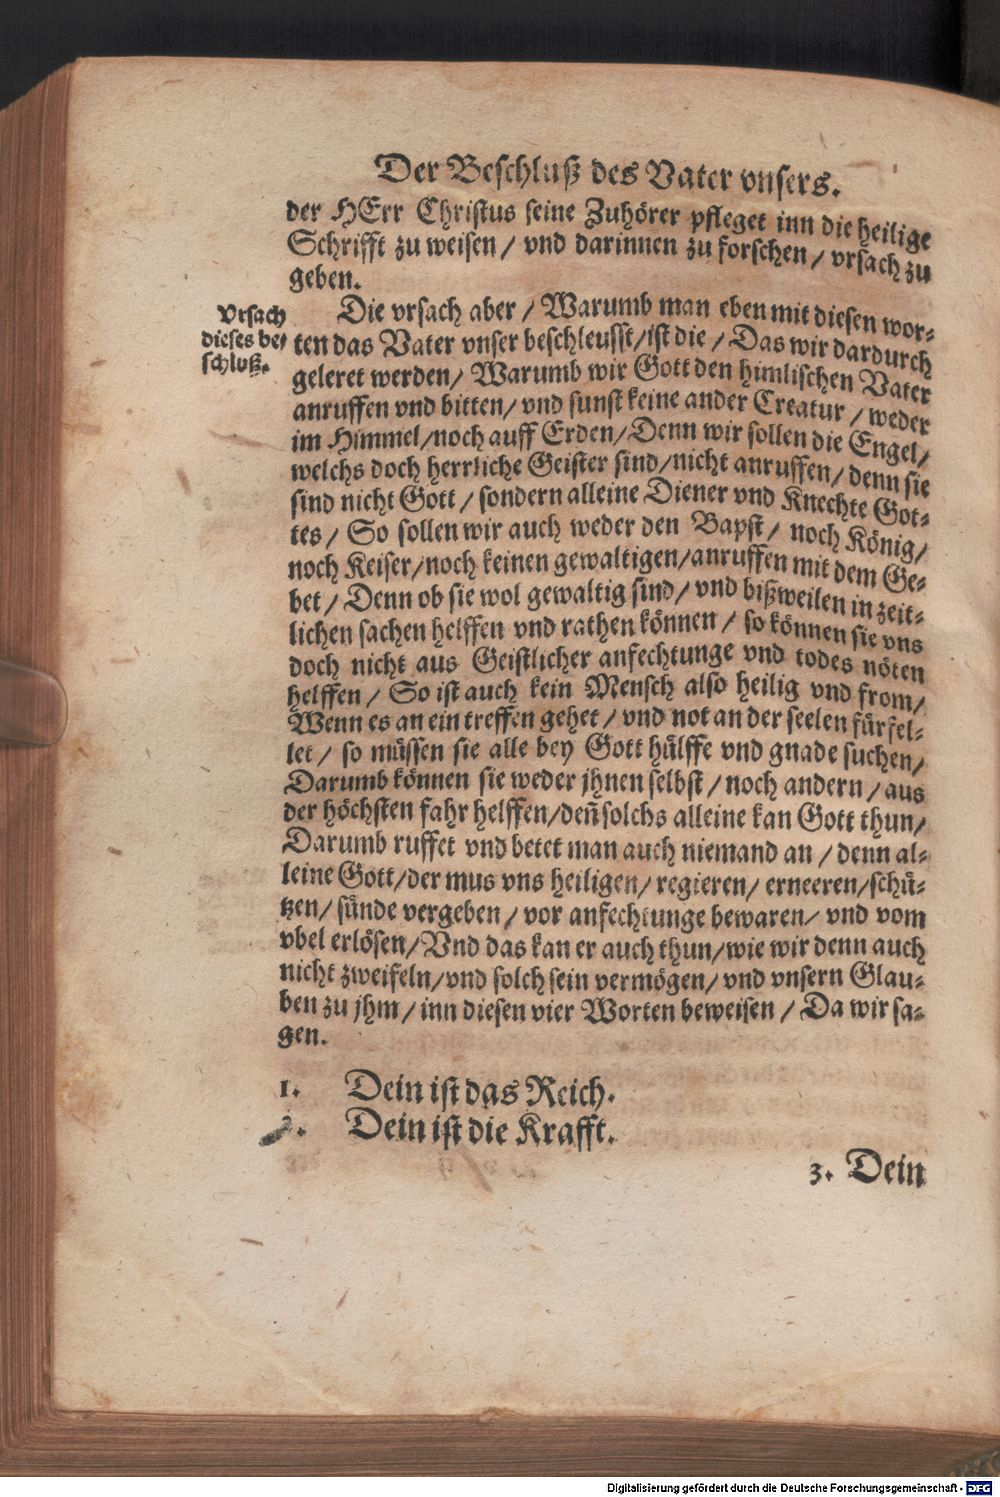 Der Beschluß des Vater vnsers.
der HErr Christus seine Zuhörer pfleget inn die heilige
Schrifft zu weisen / vnd darinnen zu forschen / vrsach zu
geben.
Vrsach
dieses be/
schluß.
Die vrsach aber / Warumb man eben mit diesen wor-
ten das Vater vnser beschleusst/ist die / Das wir dardurch
geleret werden/ Warumb wir Gott den himlischen Vater
anruffen vnd bitten/ vnd sunst keine ander Creatur / weder
im Himmel/noch auff Erden/Denn wir sollen die Engel/
welchs doch herrliche Geister sind/nicht anruffen/ denn sie
sind nicht Gott / sondern alleine Diener vnd Knechte Got-
tes / So sollen wir auch weder den Bapst/ noch König/
noch Keiser/noch keinen gewaltigen/anruffen mit dem Ge-
bet / Denn ob sie wol gewaltig sind/ vnd bißweilen in zeit-
lichen sachen helffen vnd rathen können / so können sie vns
doch nicht aus Geistlicher anfechtunge vnd todes nöten
helffen / So ist auch kein Mensch also heilig vnd from/
Wenn es an ein treffen gehet / vnd not an der seelen fürfel-
let / so müssen sie alle bey Gott hülffe vnd gnade suchen/
Darumb können sie weder jhnen selbst / noch andern / aus
der höchsten fahr helffen/deñ solchs alleine kan Gott thun/
Darumb ruffet vnd betet man auch niemand an / denn al-
leine Gott/der mus vns heiligen/ regieren/ erneeren/schü-
tzen/ sünde vergeben / vor anfechtunge bewaren/ vnd vom
vbel erlösen/Vnd das kan er auch thun/wie wir denn auch
nicht zweifeln/vnd solch sein vermögen/ vnd vnsern Glau-
ben zu jhm / inn diesen vier Worten beweisen / Da wir sa-
gen.
1. Dein ist das Reich.
2. Dein ist die Krafft.
3. Dein
Digitalisierung gefördert durch die Deutsche Forschungsgemeinschaft - DFG